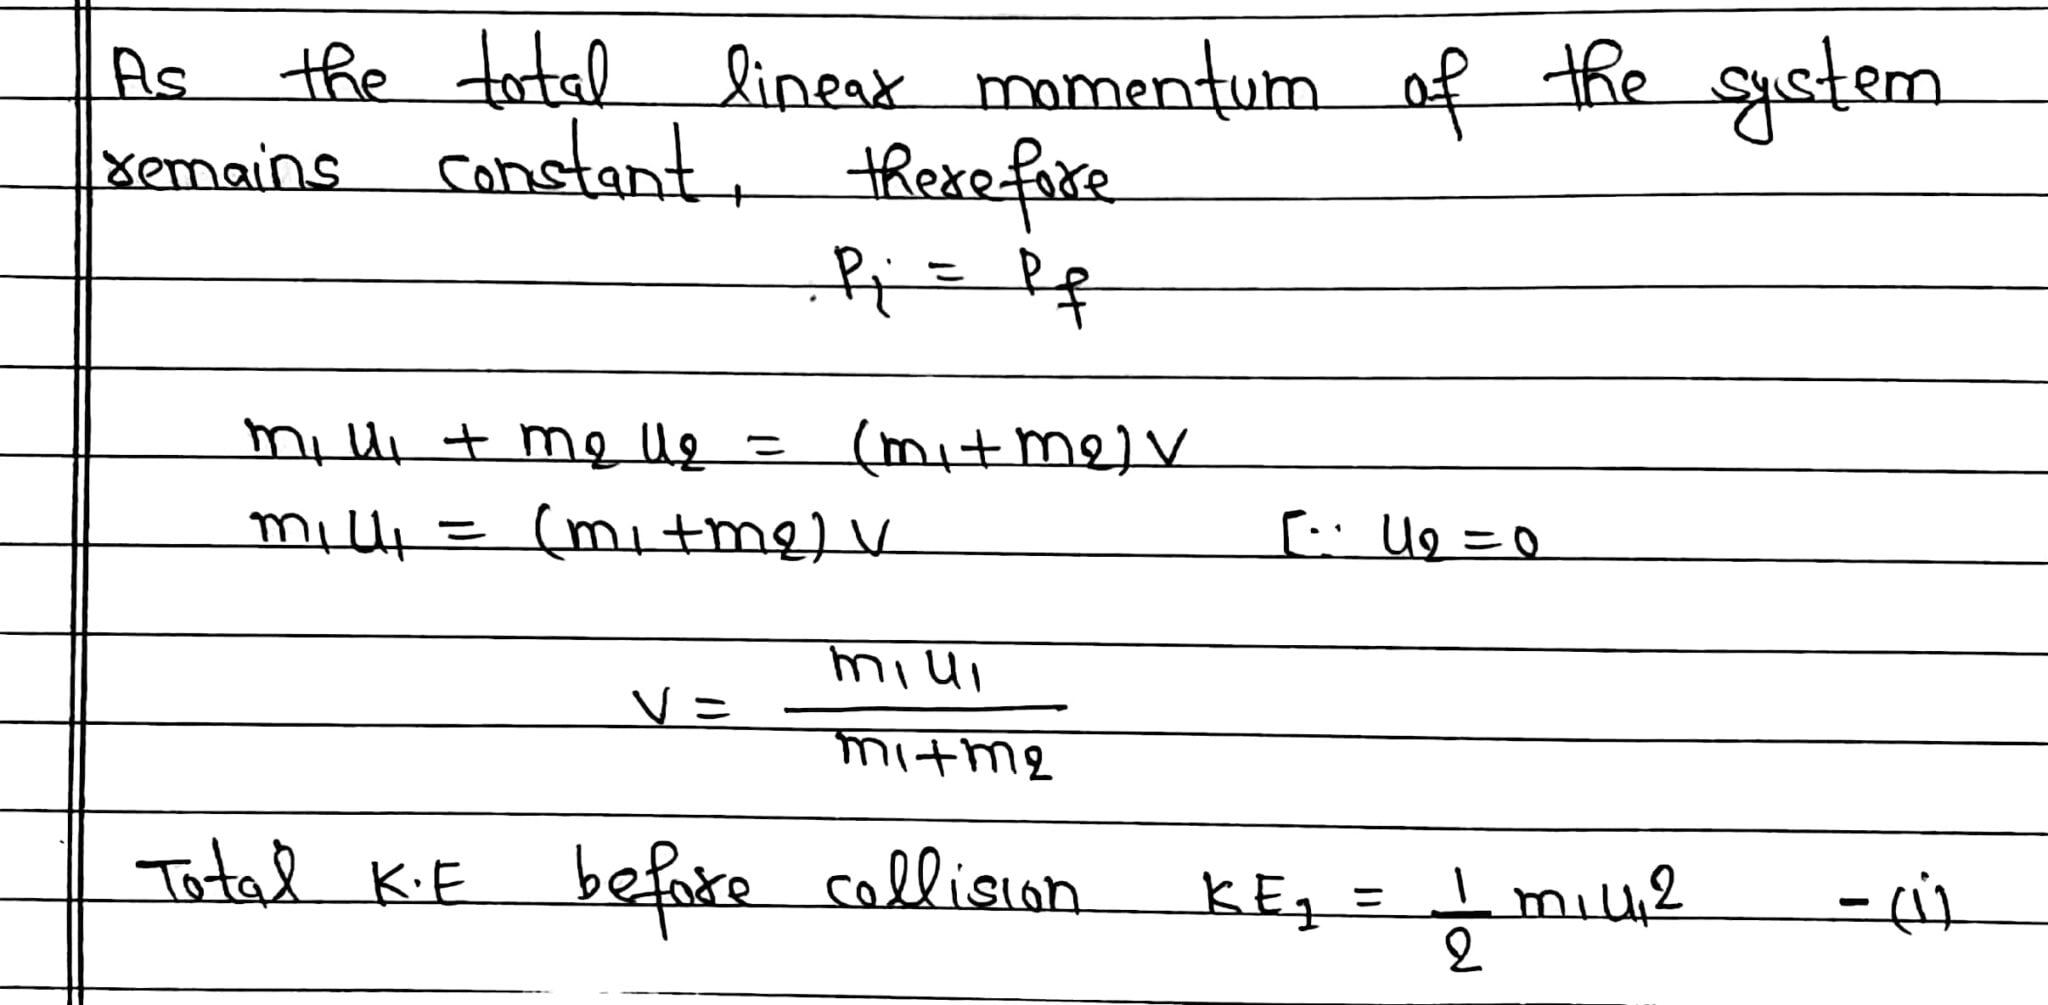 As the total linear momentum of the system
remains constant, therefore
Pi = Pf
m1 u1 + m2 u2 = (m1+m2) v
m1u1 = (m1+m2) v [∵ u2=0
v = m1u1 / m1+m2
Total K.E before collision KE1 = 1/2 m1u1² - (i)